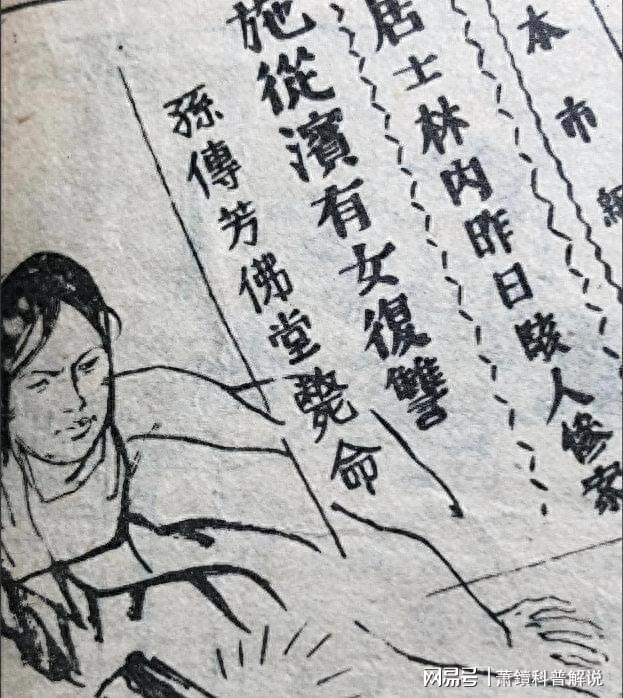 本市
居士林內昨日駭人慘案
施從濱有女復讐
孫傳芳佛堂斃命
网易号 | 萧镜科普解说